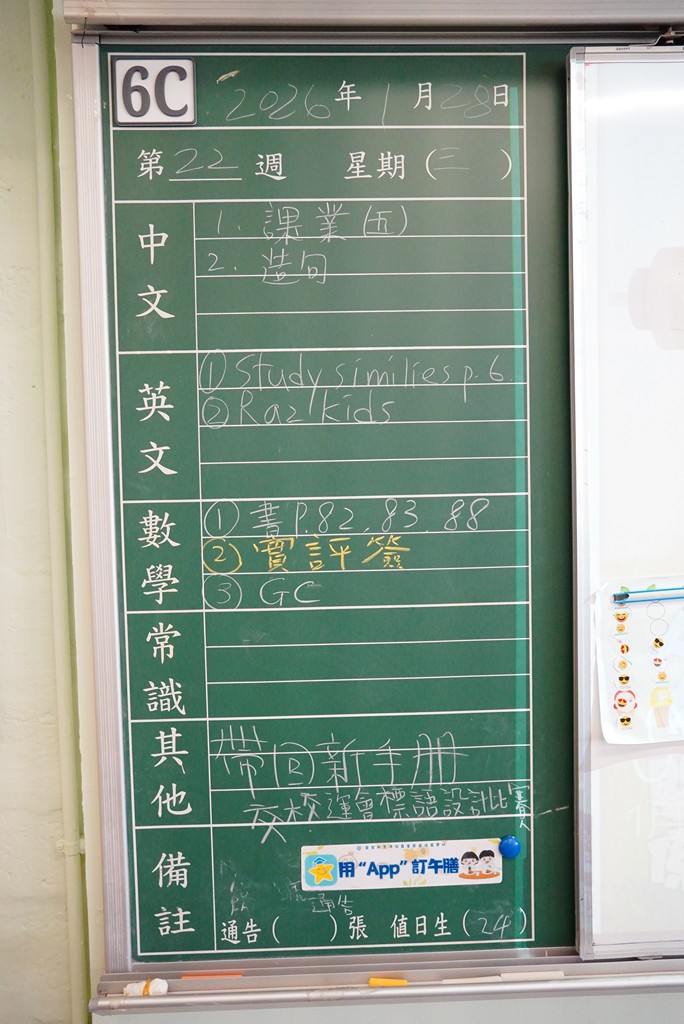 6C 2026年1月28日
第22週 星期(三)
中文
1. 課業(五)
2. 造句
英文
① Study similies p.6.
② Raz kids
數學
① 書 P.82, 83, 88
② 實評簽
③ GC
常識
其他
帶回新手冊
交校運會標語設計比賽
備註
用“App”訂午膳
通告
通告( )張 值日生(24)